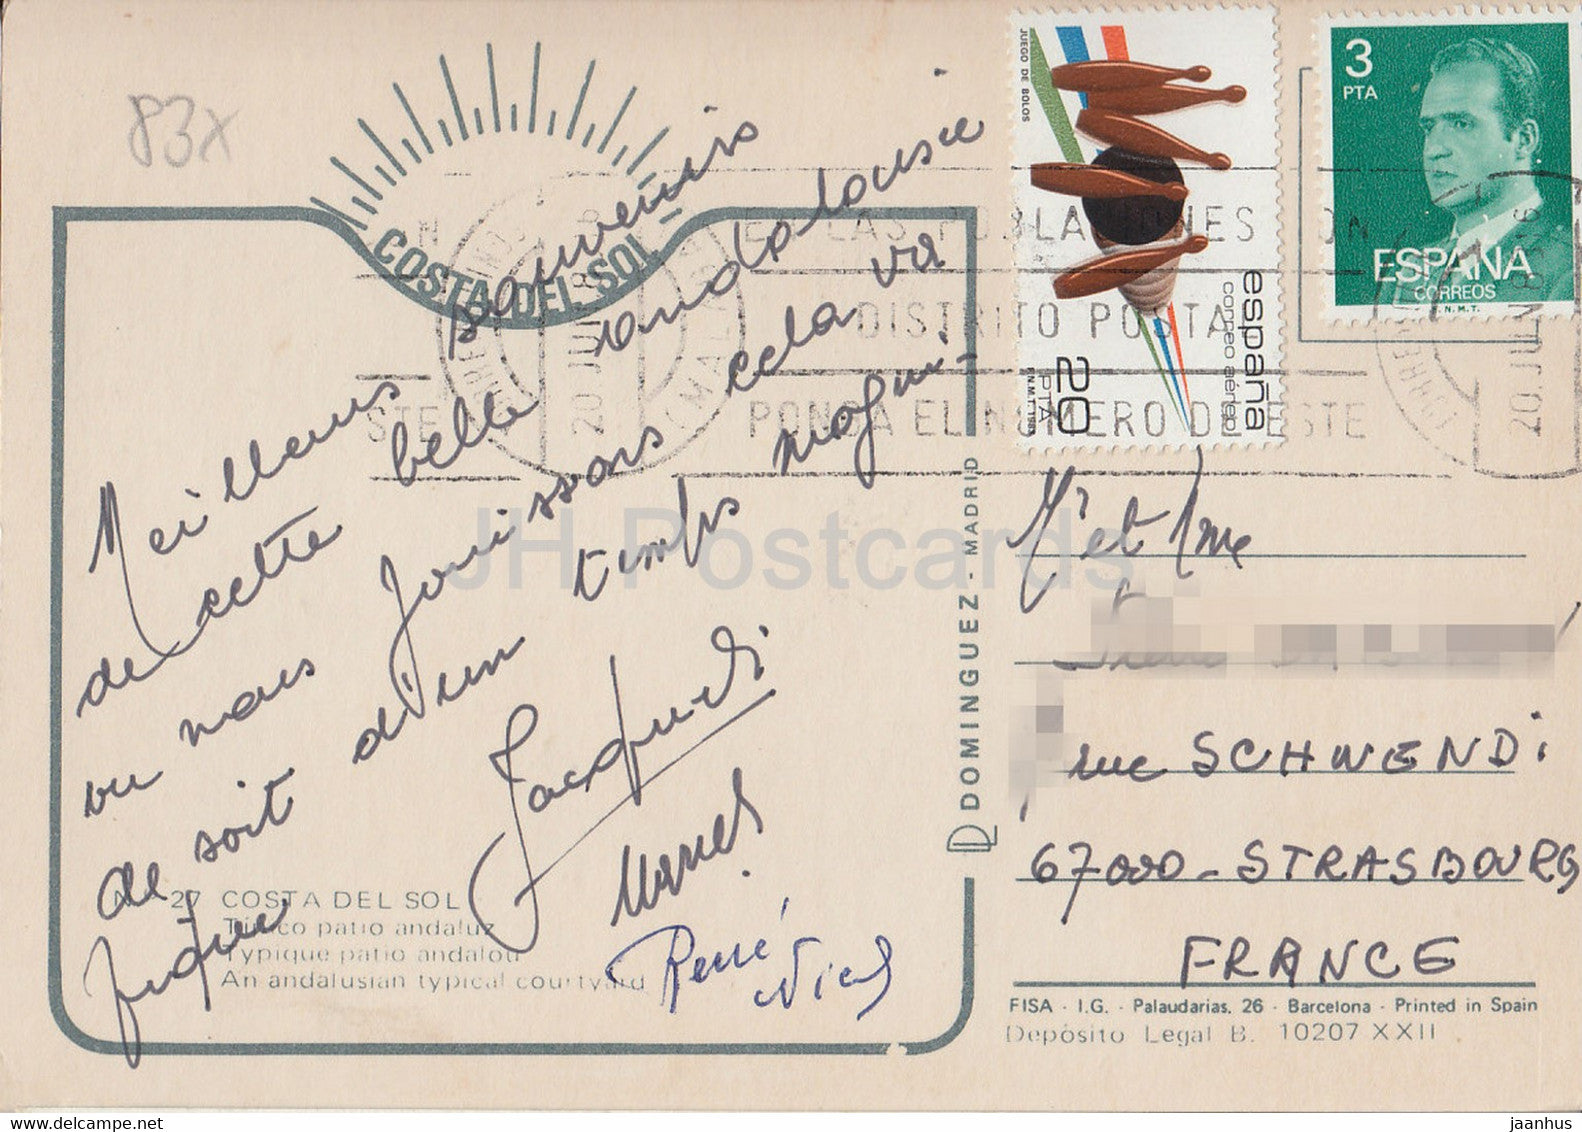 83x
COSTA DEL SOL
Meilleurs souvenirs
de cette belle andalousie
ou nous jouissons cela va
de soit d'un temps magni-
fique
Jacqueline
René
27 COSTA DEL SOL
Típico patio andaluz
Typique patio andalou
An andalusian typical courtyard
DOMINGUEZ - MADRID
JUEGO DE BOLOS
españa
correo aéreo
20 PTA
F.N.M.T. 1985
3
PTA
ESPAÑA
CORREOS
F.N.M.T.
EN LAS POBLACIONES CON
DISTRITO POSTAL
PONGA EL NUMERO DE ESTE
20 JUN 86
TORREMOLINOS
MALAGA
M et Mme
rue SCHWENDi
67000 - STRASBOURG
FRANCE
FISA - I.G. - Palaudarias, 26 - Barcelona - Printed in Spain
Depósito Legal B. 10207 XXII
JH Postcards
www.hippostcard.com/store/jhpostcards
jaanhus